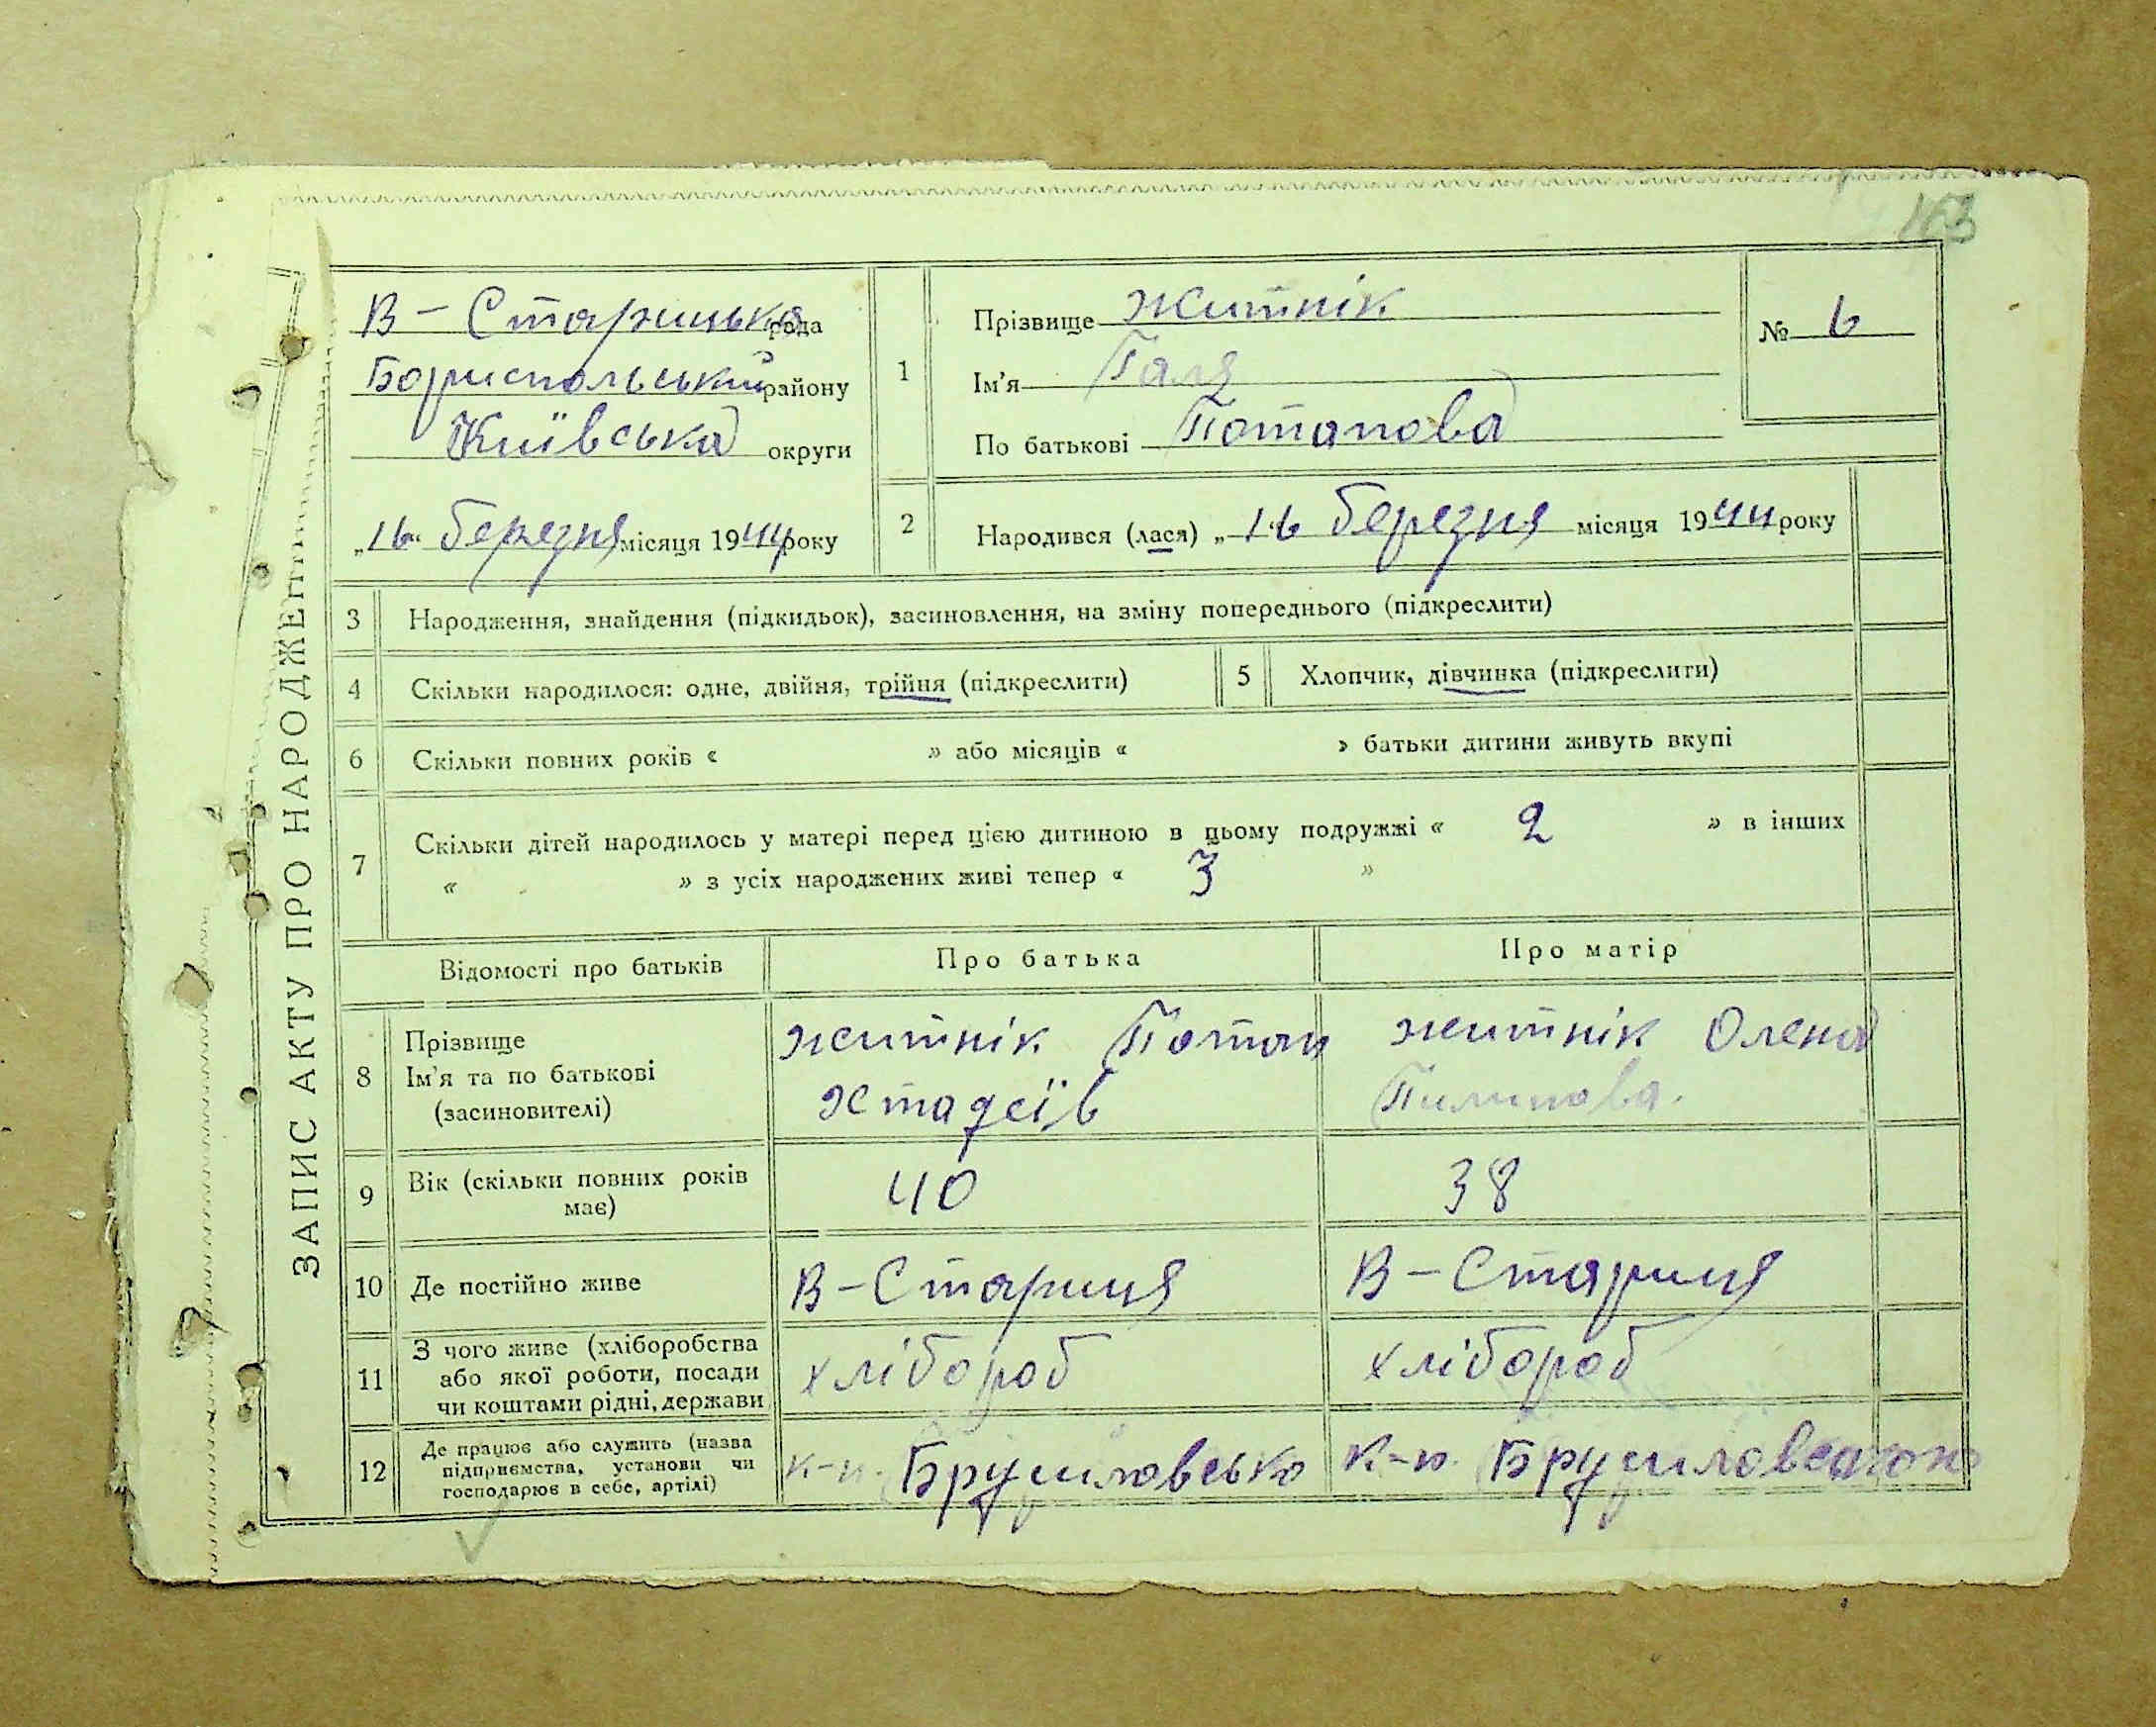 163
В-Старицька рада
Бориспольський району
Київська округи
„16“ березня місяця 1944 року
1
Прізвище Житнік
Ім'я Галя
По батькові Потапова
№ 6
2
Народився (лася) „16 березня місяця 1944 року
ЗАПИС АКТУ ПРО НАРОДЖЕН
3 Народження, знайдення (підкидьок), засиновлення, на зміну попереднього (підкреслити)
4 Скільки народилося: одне, двійня, трійня (підкреслити)
5 Хлопчик, дівчинка (підкреслити)
6 Скільки повних років « » або місяців « » батьки дитини живуть вкупі
7 Скільки дітей народилось у матері перед цією дитиною в цьому подружжі « 2 » в інших
« » з усіх народжених живі тепер « 3 »
Відомості про батьків
Про батька
Про матір
8
Прізвище
Ім'я та по батькові
(засиновителі)
Житнік Потап
житнік Олена
Пилипова.
9
Вік (скільки повних років
має)
40
38
10 Де постійно живе
В-Стариця
В-Стариця
11
З чого живе (хліборобства
або якої роботи, посади
чи коштами рідні, держави
хлібороб
хлібороб
12
Де працює або служить (назва
підприємства, установи чи
господарює в себе, артілі)
Брушловсько